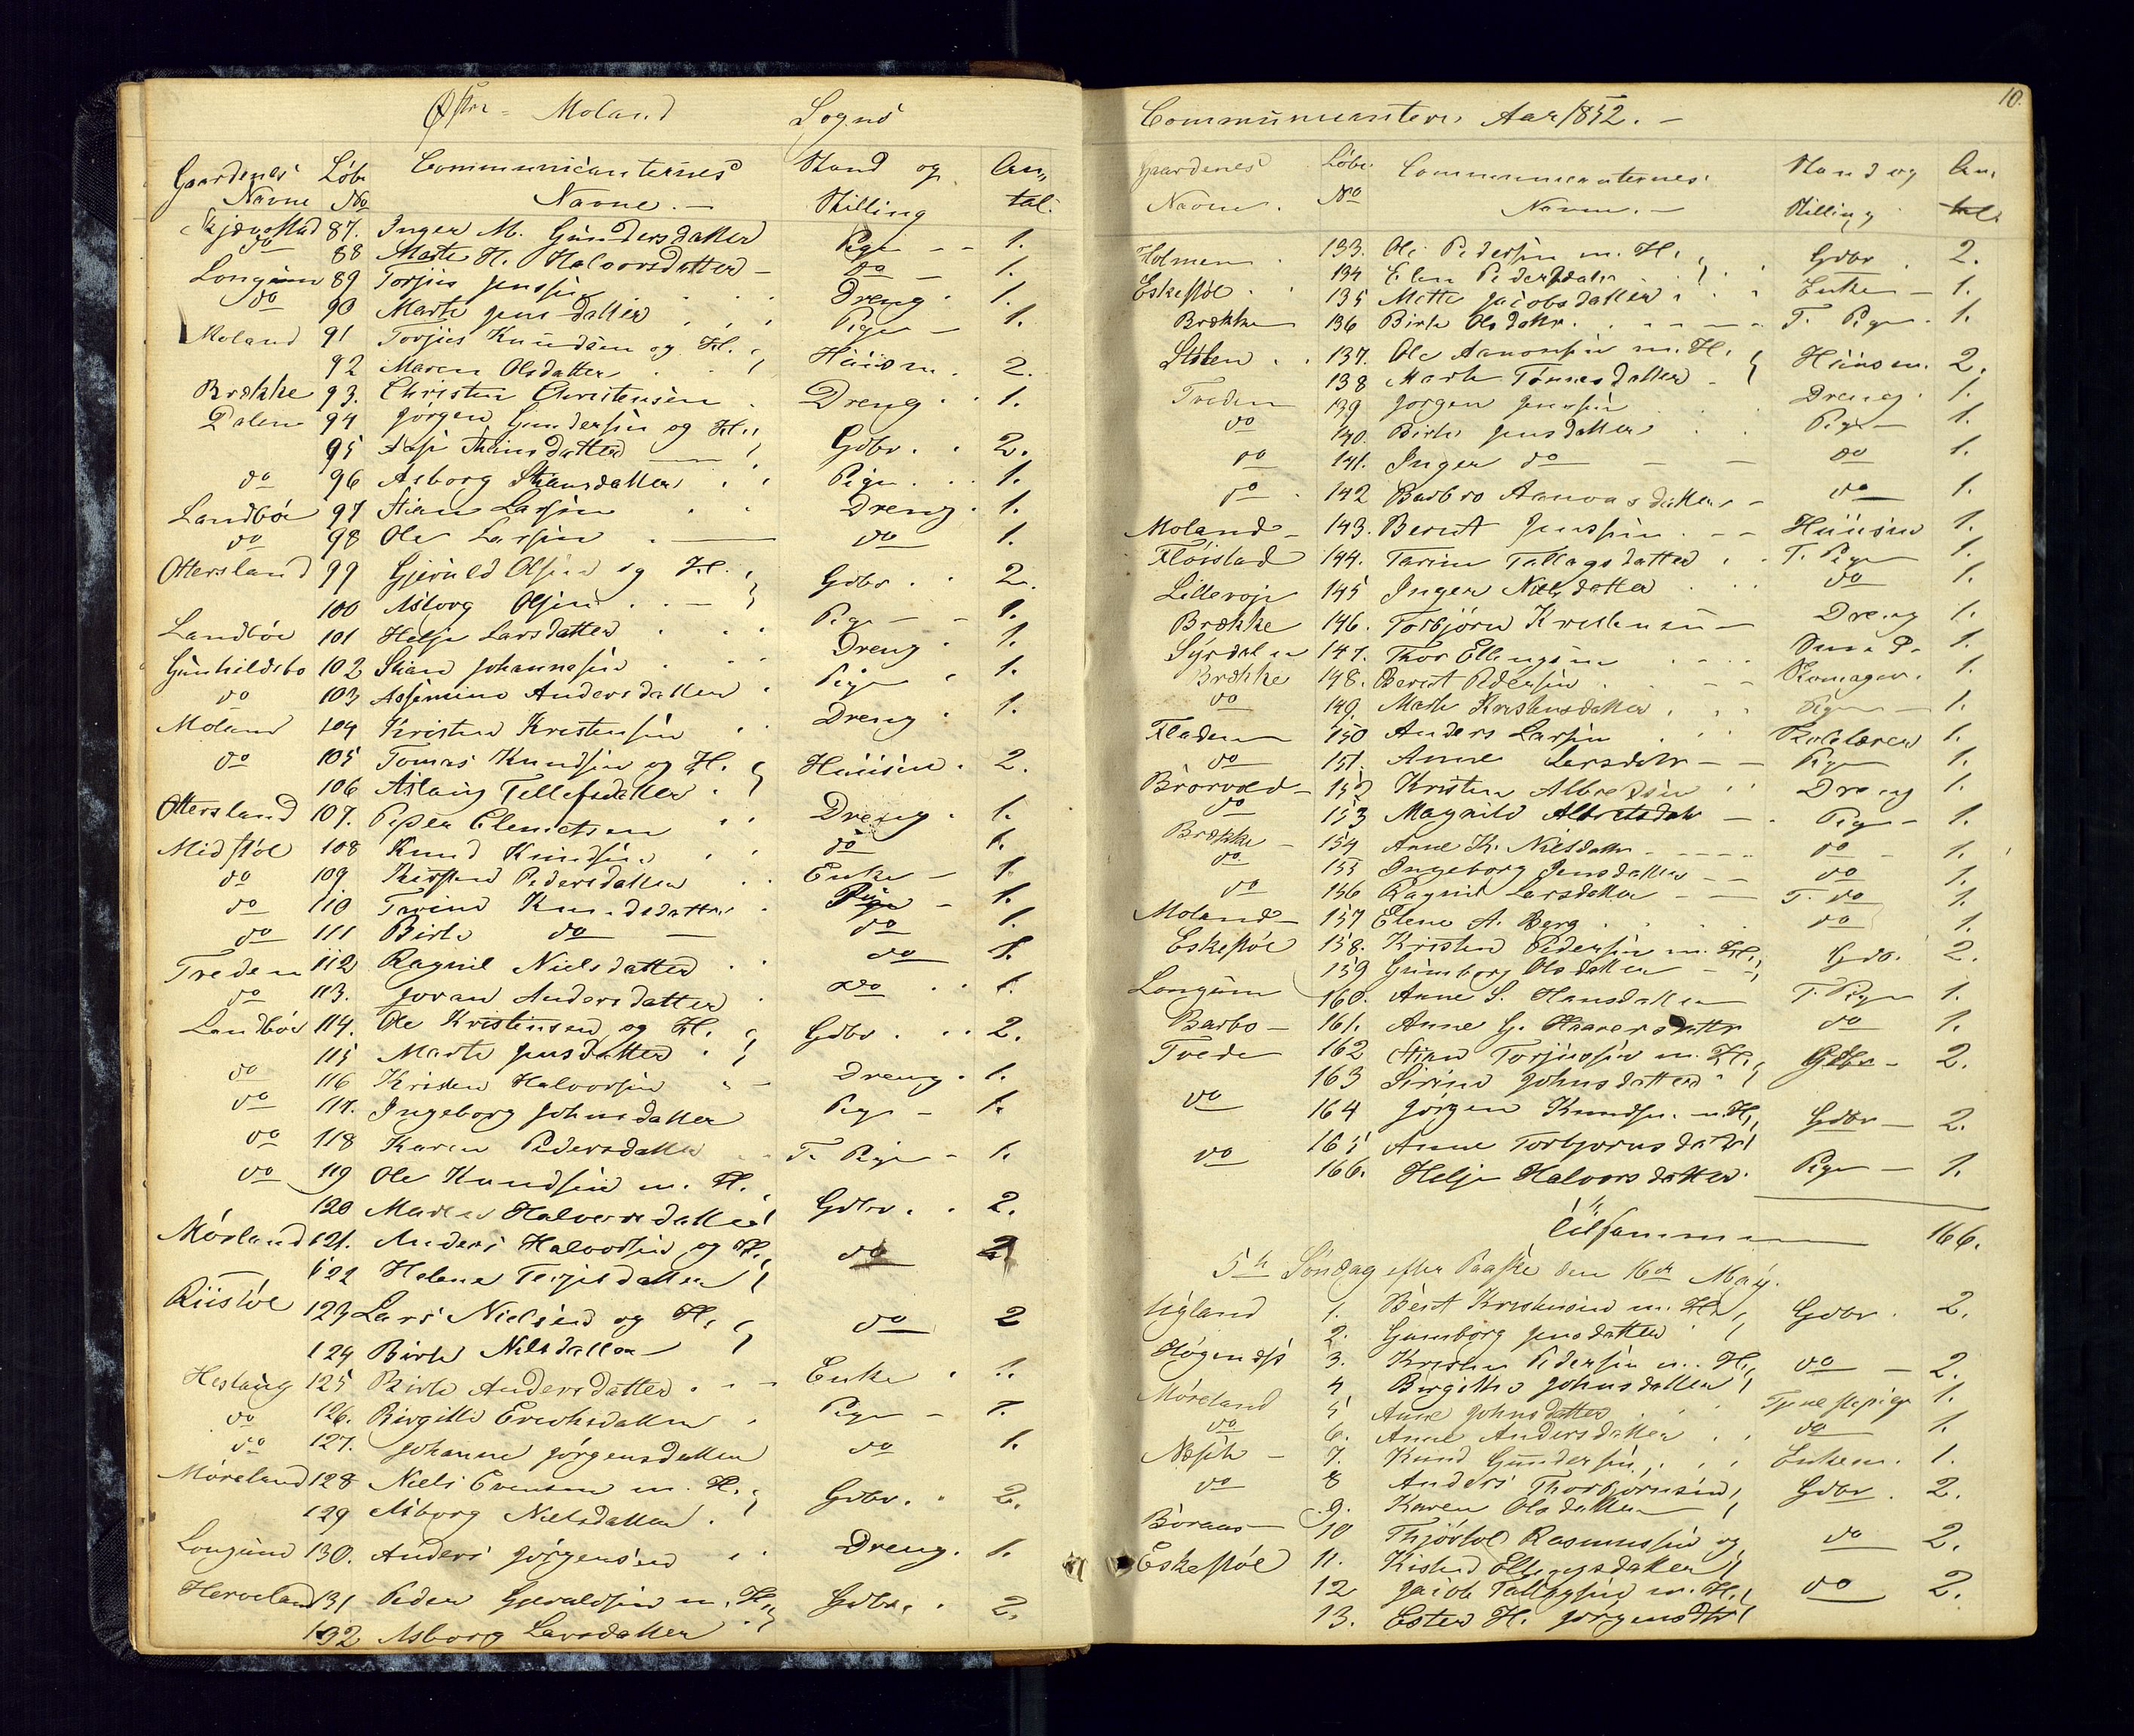 Østre - Moland Sogns
Gaardenes Løbe Communicanternes Stand og An-
Navne No Navne. — Stilling tal.
87. Inger M. Gundersdatter Pige — — 1.
do 88 Marte H. Halvorsdatter — do — 1.
Longum 89 Torjus Jenssen Dreng. 1.
do 90 Marte Jensdatter Pige — 1.
Moland 91 Torjus Knudsen og H.
92 Maren Olsdatter Huusm. 2.
Brække 93. Christen Christensen Dreng. 1.
Dalen 94 Jørgen Gundersen og H.
95 Gdbr. 2.
do 96 Asborg Pige 1.
Landbøe 97 Stian Larsen Dreng. 1.
do 98 Ole Larsen do 1.
Ottersland 99 Gjeruld Olsen og H.
100 Asborg Olsen Gdbr. 2.
Landbøe 101 Helje Larsdatter Pige — 1.
Gunhildsbo 102 Stian Johannesen Dreng. 1.
do 103 Andersdatter Pige 1.
Moland 104 Kristen Kristensen Dreng. 1.
do 105 Tomas Knudsen og H.
106 Aslaug Tellefsdatter Huusm. 2.
Ottersland 107. Peder Clemetsen Dreng. 1.
Midstøl 108 Knud Knudsen do 1.
do 109 Kirsten Pedersdatter Enke — 1.
do 110 Tarine Knudsdatter Pige — 1.
do 111 Birte do — do 1.
Treden 112 Ragnil Nielsdatter do 1.
do 113. Joran Andersdatter do 1.
Landbøe 114. Ole Kristensen og H.
115 Marte Jensdatter Gdbr. 2.
do 116 Kristen Halvorsen Dreng. 1.
do 117. Ingeborg Johnsdatter Pige — 1.
do 118 Karen Pedersdatter T. Pige — 1.
do 119 Ole Knudsen m. H.
120 Maren Halvorsdatter Gdbr. 2.
Mørland 121. Anders Halvorsen og H.
122 Helene Terjesdatter do 2
Riistøl 123 Lars Nielsen og H.
124 Birte Nilsdatter do 2
Heslaug 125 Birte Andersdatter Enke 1.
do 126. Birgitte Erichsdatter Pige — 1.
do 127. Johanne Jørgensdatter do 1.
Møreland 128 Niels Evensen m. H.
129 Asborg Nielsdatter. Gdbr. 2.
Longum 130. Anders Jørgensen Dreng. 1.
Herveland 131 Peder Gjeruldsen m. H. Gdbr. 2.
132 Asborg Larsdatter
10.
Communicanter. Aar 1852. —
Gaardenes Løbe Communicanternes Stand og An-
Navne. No Navne. — Stilling tal.
Holmen 133. Ole Pedersen m. H. Gdbr. 2.
134 Elen Pedersdatter
Eskestøl 135 Mette Jacobsdatter Enke — 1.
Brække 136 Birte Olsdattr. T. Pige. 1.
Stølen 137. Ole Aanonsen m. H.
138 Marte Tomasdatter Huusm. 2.
Treden 139 Jørgen Jenssen Dreng. 1.
do 140. Birte Jensdatter Pige — 1.
do 141. Inger do — do 1.
do 142 Barbro Aanonsdatter do 1.
Moland — 143. Berent Jenssen. Huusm 1.
Fløistad 144. Tarine Tallagsdatter T. Pige 1.
145 Inger Nielsdatter do 1.
Brække 146. Torbjørn Kristensen — Dreng 1.
147. Thor Ellingsen 1.
Brække 148. Berent Pedersen Skomager. 1.
do 149. Marte Kristensdatter Pige — 1.
Fladen 150 Anders Larsen Skolelærer 1.
do 151. Anne Larsdatr — — Pige 1.
152 Kristen Albretsen Dreng 1.
do 153 Magnild Albretsdatr — Pige — 1.
Brække — 154 Anne K. Nilsdattr do — 1.
do 155 Ingeborg Jensdatter do 1.
do 156 Ragnil Larsdatter T. do 1.
Moland — 157 Elene A. Berg do 1.
Eskestøl 158. Kristen Pedersen m. H. Gdb. 2.
159 Gunborg Olsdatter
Longum 160. Anne S. Hansdatter T. Pige 1.
Barbo — 161. Anne G. do 1.
Trede 162 Stian Torjussen m. H. Gdbr — 2.
163 Sirine Johnsdatter
do 164 Jørgen Knudsen m. H. Gdbr — 2.
165 Anne Torbjørnsdatr
do 166. Helje Halvorsdatter. Pige — 1.
Tilsammen — 166.
5te Søndag efter Paaske den 16de May.
Ugland 1. Bent Kristensen m. H. Gdbr. 2.
2. Gunborg Jensdatter
3. Kristen Pedersen m. H. do — 2.
4 Birgitte Johnsdatter
Møreland 5 Anne Johnsdatter Tjenestepige 1.
do 6. Anne Andersdatter do 1.
Næsch — 7. Knud Gundersen Enkem. 1.
do 8 Anders Thorbjørnsen Gdbr. 2.
9. Karen Olsdatter
10 Thjøstol Rasmussen og do 2.
Eskestøl 11. Kisten Ellingsdatter
12 Jacob Tallagsen m. H. do 2.
13. Ester H. Jørgensdtr